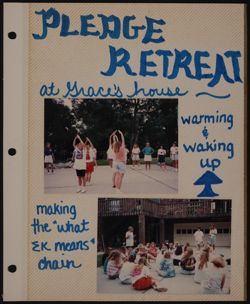 PLEDGE
RETREAT
at Grace's house
warming
&
waking
up
making
the "what
ΣK means"
chain